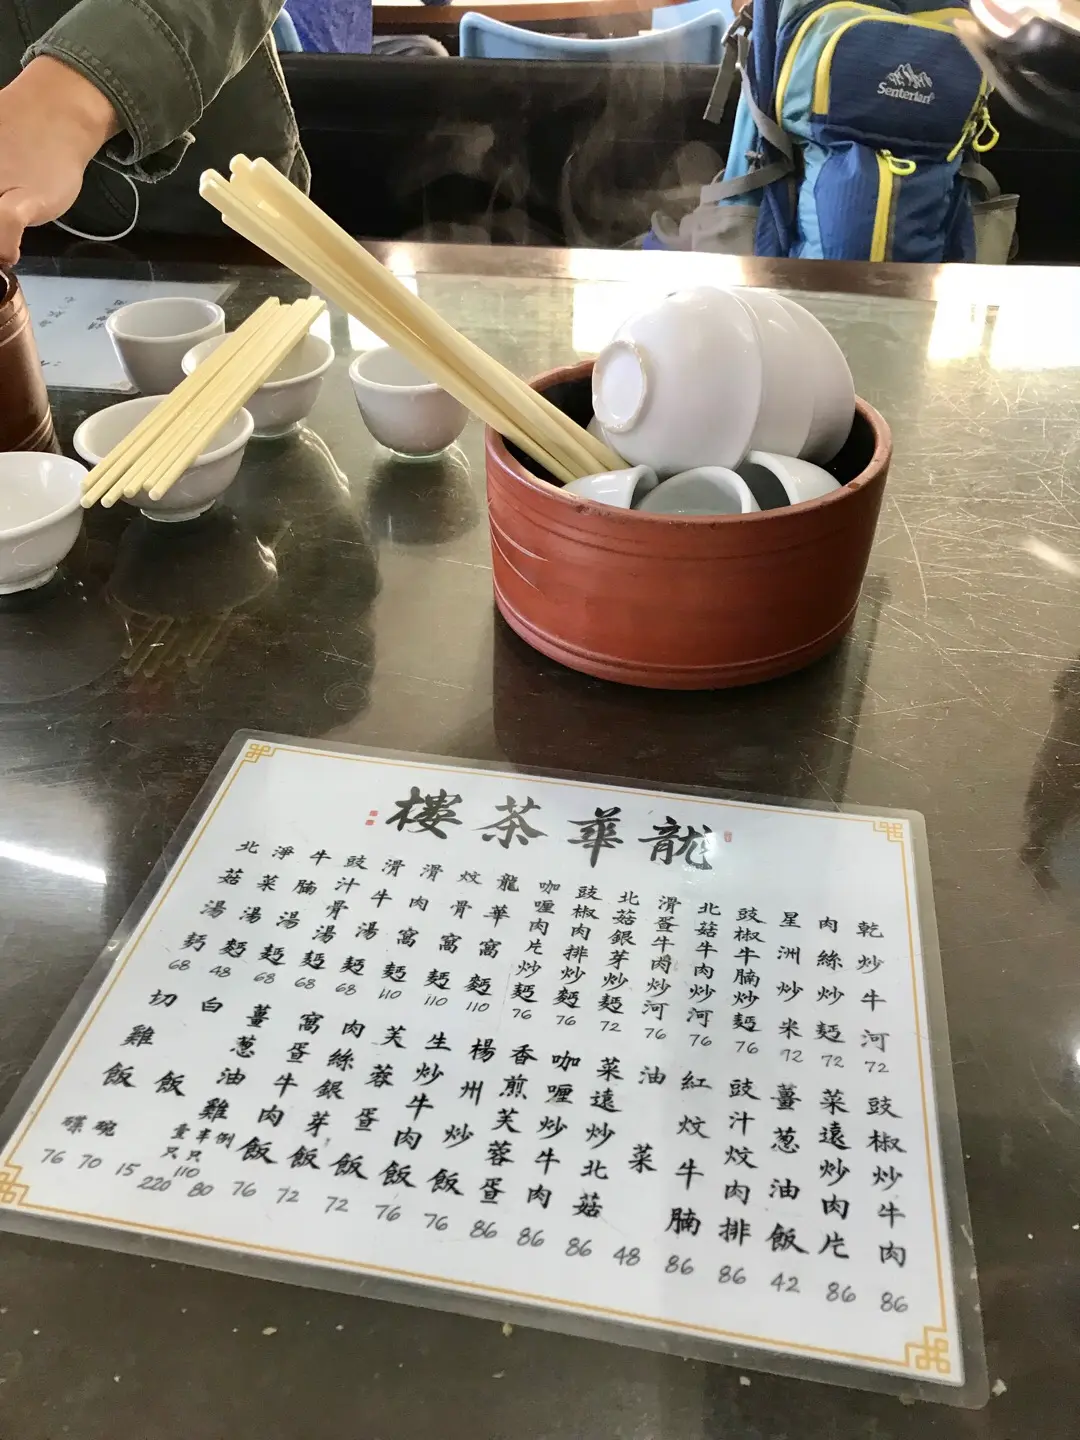 Senterlan
龍華茶樓
乾炒牛河 72
肉絲炒麵 72
星洲炒米 92
豉椒牛腩炒麵 76
北菇牛肉炒河 76
滑蛋牛肉炒河 76
北菇銀芽炒麵 72
豉椒肉排炒麵 76
咖喱肉片炒麵 76
龍華窩麵 110
炆骨窩麵 110
滑肉窩麵 110
滑牛湯麵 68
豉汁骨湯麵 68
牛腩湯麵 68
淨菜湯麵 48
北菇湯麫 68
豉椒炒牛肉 86
菜遠炒肉片 86
薑葱油飯 42
豉汁炆肉排 86
紅炆牛腩 86
油菜 48
菜遠炒北菇 86
咖喱炒牛肉 86
香煎芙蓉蛋 86
楊州炒飯 76
生炒牛肉飯 76
芙蓉蛋飯 72
肉絲銀芽飯 72
窩蛋牛肉飯 76
薑葱油雞 例 80 半只 110 壹只 220
白飯 15
切雞飯 碗 70 碟 76